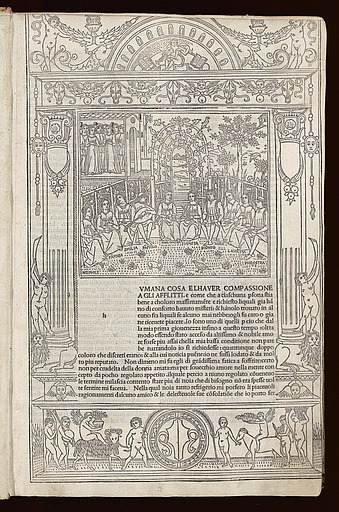 h
VMANA COSA E LHAVER COMPASSIONE
A GLI AFFLITTI. e come che a ciaschuna psona stia
bene a choloro massimamẽte e richiesto liquali gia hã
no di conforto hauuto mistieri & hãnolo trouato in al
cuno fra liquali se alcuno mai nebbe o gli fu caro o gia
ne riceuette piacere. Io sono uno di quelli p cio che dal
la mia prima giouenezza infino a questo tempo oltra
modo essendo stato acceso da altissimo & nobile amo
re forse piu assai chella mia bassa conditione non pare
be narrandolo io si richiedesse: quantunque appo
coloro che discreti erano & alla cui noticia puẽnio ne fussi lodato & da mol
to piu reputato. Non dimeno mi fu egli di grãdissima fatica a sofferire: no
non per crudelta della donna amata: ma per souerchio amore nella mente con
cepto da pocho regolato appetito. ilquale percio a niuno regolato
termine mi lascia contento stare piu di noia che di bisogno nõ era spesse uol
te sentire mi facena. Nella qual noia tanto refrigerio mi porsero li piaceuoli
ragionamenti dalcuno amico & le